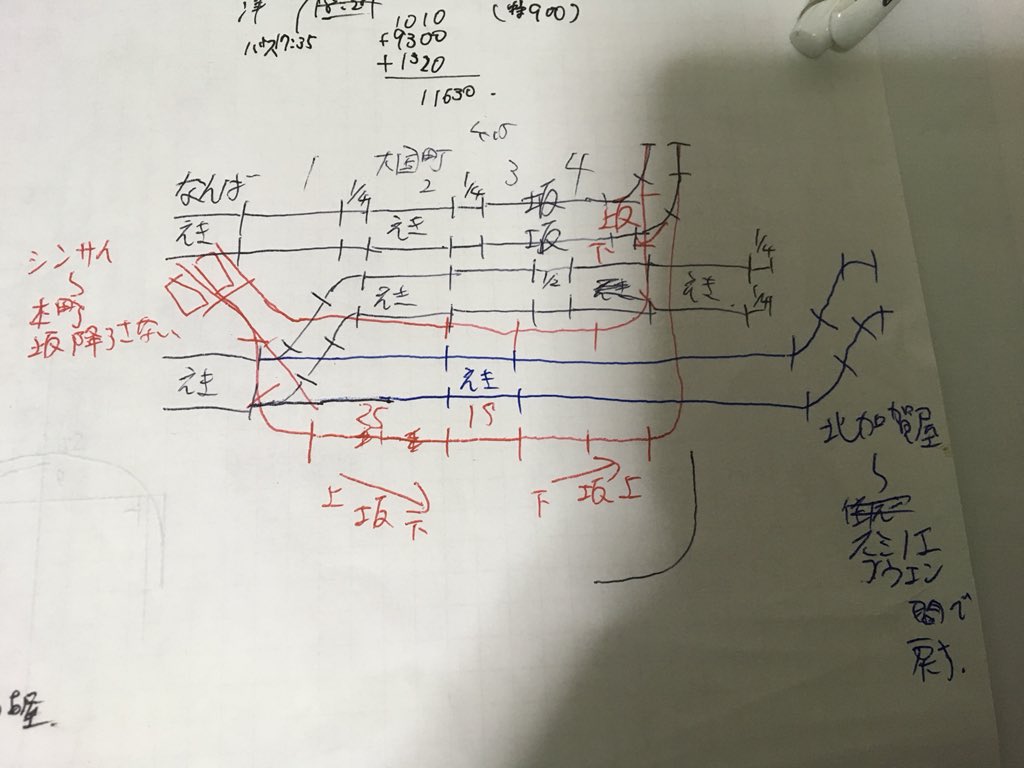 (特900)
バス17:35
1010
+9300
+1320
11630.
4.5
なんば 1 1/4 大国町 2 1/4 3 4
えき えき 坂 坂
坂 下
シンサイ
〜
本町
坂降ろさない
えき 1/2 えき 1/4
1/4
えき えき
2S 1S
上 坂 下
下 坂 上
北加賀屋
〜
スミノエ
コウエン
間で
戻す.